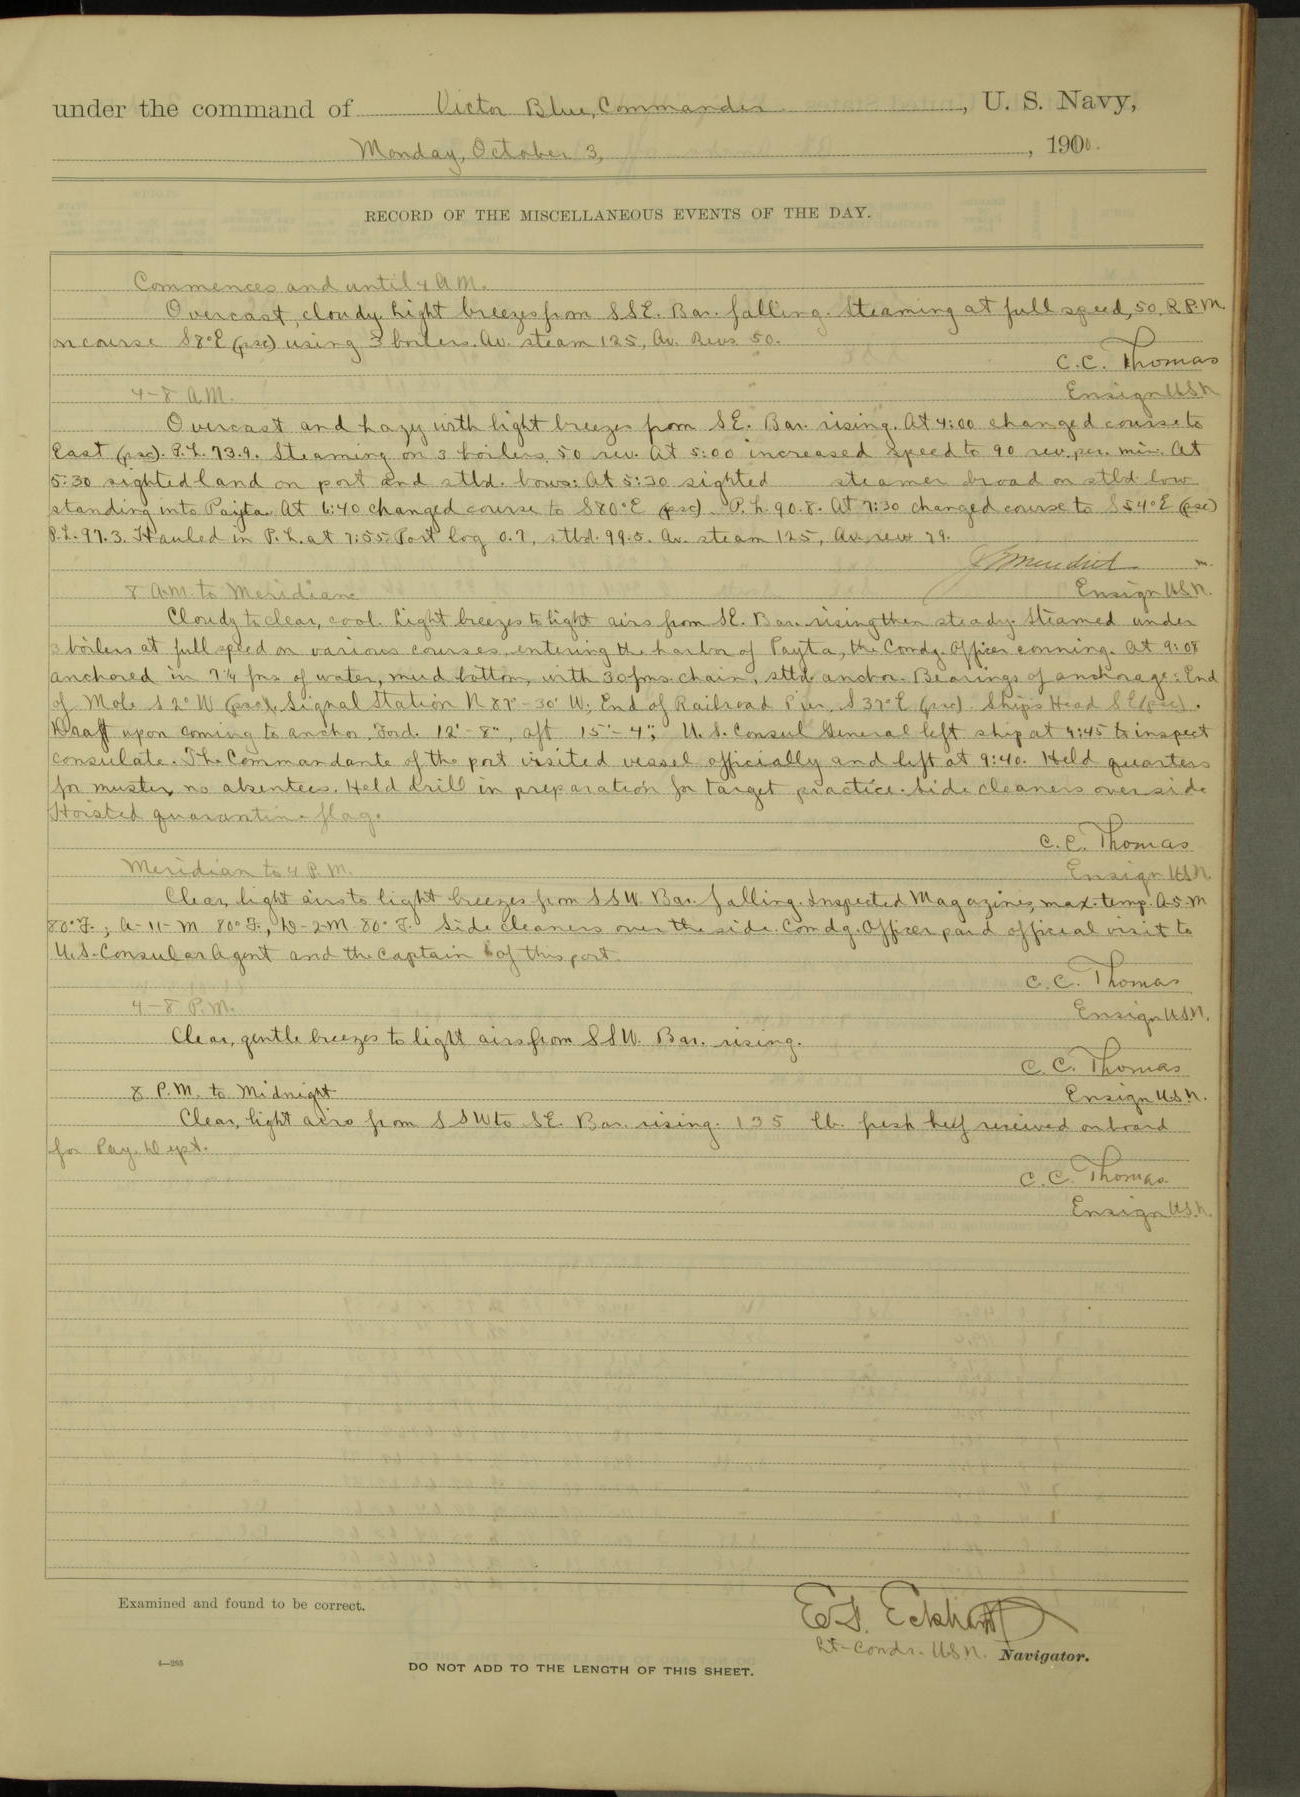 under the command of Victor Blue, Commander, U. S. Navy,
Monday, October 3, , 1900.
RECORD OF THE MISCELLANEOUS EVENTS OF THE DAY.
Commences and until 4 A.M.
Overcast, cloudy. Light breezes from SSE. Bar. falling. Steaming at full speed, 50, R.P.M.
on course S8°E (psc) using 3 boilers. Av. steam 125, Av. Revs. 50.
C.C. Thomas
Ensign USN
4-8 A.M.
Overcast and hazy with light breezes from SE. Bar. rising. At 4:00 changed course to
East (psc). P.L. 73.9. Steaming on 3 boilers, 50 rev. At 5:00 increased speed to 90 rev. per. min. At
5:30 sighted land on port and stbd. bows. At 5:30 sighted steamer broad on stbd bow
standing into Payta. At 6:40 changed course to S80°E (psc). P.L. 90.8. At 7:30 changed course to S54°E (psc)
P.L. 97.3. Hauled in P.L. at 7:55. Port log 0.7, stbd. 99.5. Av. steam 125, Av. rev 79.
Ensign U.S.N.
8 A.M. to Meridian
Cloudy to clear, cool. Light breezes to light airs from SE. Bar. rising then steady. Steamed under
3 boilers at full speed on various courses, entering the harbor of Payta, the Comdg. Officer conning. At 9:08
anchored in 7¼ fms of water, mud bottom, with 30 fms. chain, stbd. anchor. Bearings of anchorage: End
of Mole S 2° W (psc), Signal Station N 87°-30' W; End of Railroad Pier, S 37° E (psc). Ship's Head SE (psc).
Draft upon coming to anchor, Ford. 12'-8", aft 15'-4"; U.S. Consul General left ship at 9:45 to inspect
consulate. The Commandante of the port visited vessel officially and left at 9:40. Held quarters
for muster, no absentees. Held drill in preparation for target practice. Side cleaners over side
Hoisted quarantine flag.
C.C. Thomas
Ensign U.S.N.
Meridian to 4 P.M.
Clear, light airs to light breezes from SSW. Bar. falling. Inspected Magazines, max. temp. A-5-M
80°F.; A-11-M 80°F., D-2-M 80°F. Side cleaners over the side. Comdg. Officer paid official visit to
U.S. Consular Agent and the Captain of this port.
C.C. Thomas
Ensign U.S.N.
4-8 P.M.
Clear, gentle breezes to light airs from SSW. Bar. rising.
C.C. Thomas
Ensign U.S.N.
8 P.M. to Midnight
Clear, light airs from SSW to SE. Bar. rising. 135 lb. fresh beef received on board
for Pay. Dept.
C.C. Thomas
Ensign U.S.N.
Examined and found to be correct.
E. Eckhardt
Lt-Comdr. U.S.N. Navigator.
4—285
DO NOT ADD TO THE LENGTH OF THIS SHEET.